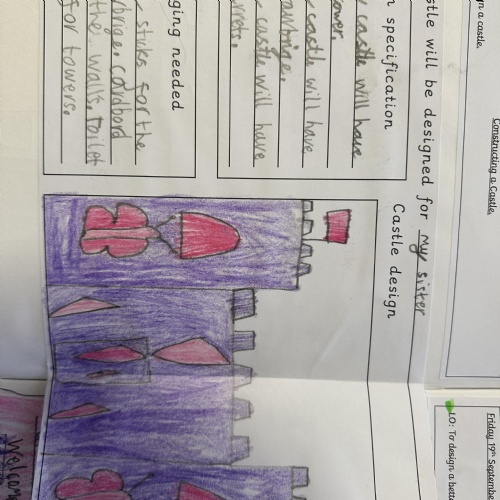 gn a castle.
Constructing a Castle.
stle will be designed for my sister
n specification
castle will have
ower.
castle will have
castle will have
ging needed
stuks for the
brige. Coldbord
the walls, toilet
for towers.
Castle design
Friday 19th Septembe
LO: To design a bette
Welcome